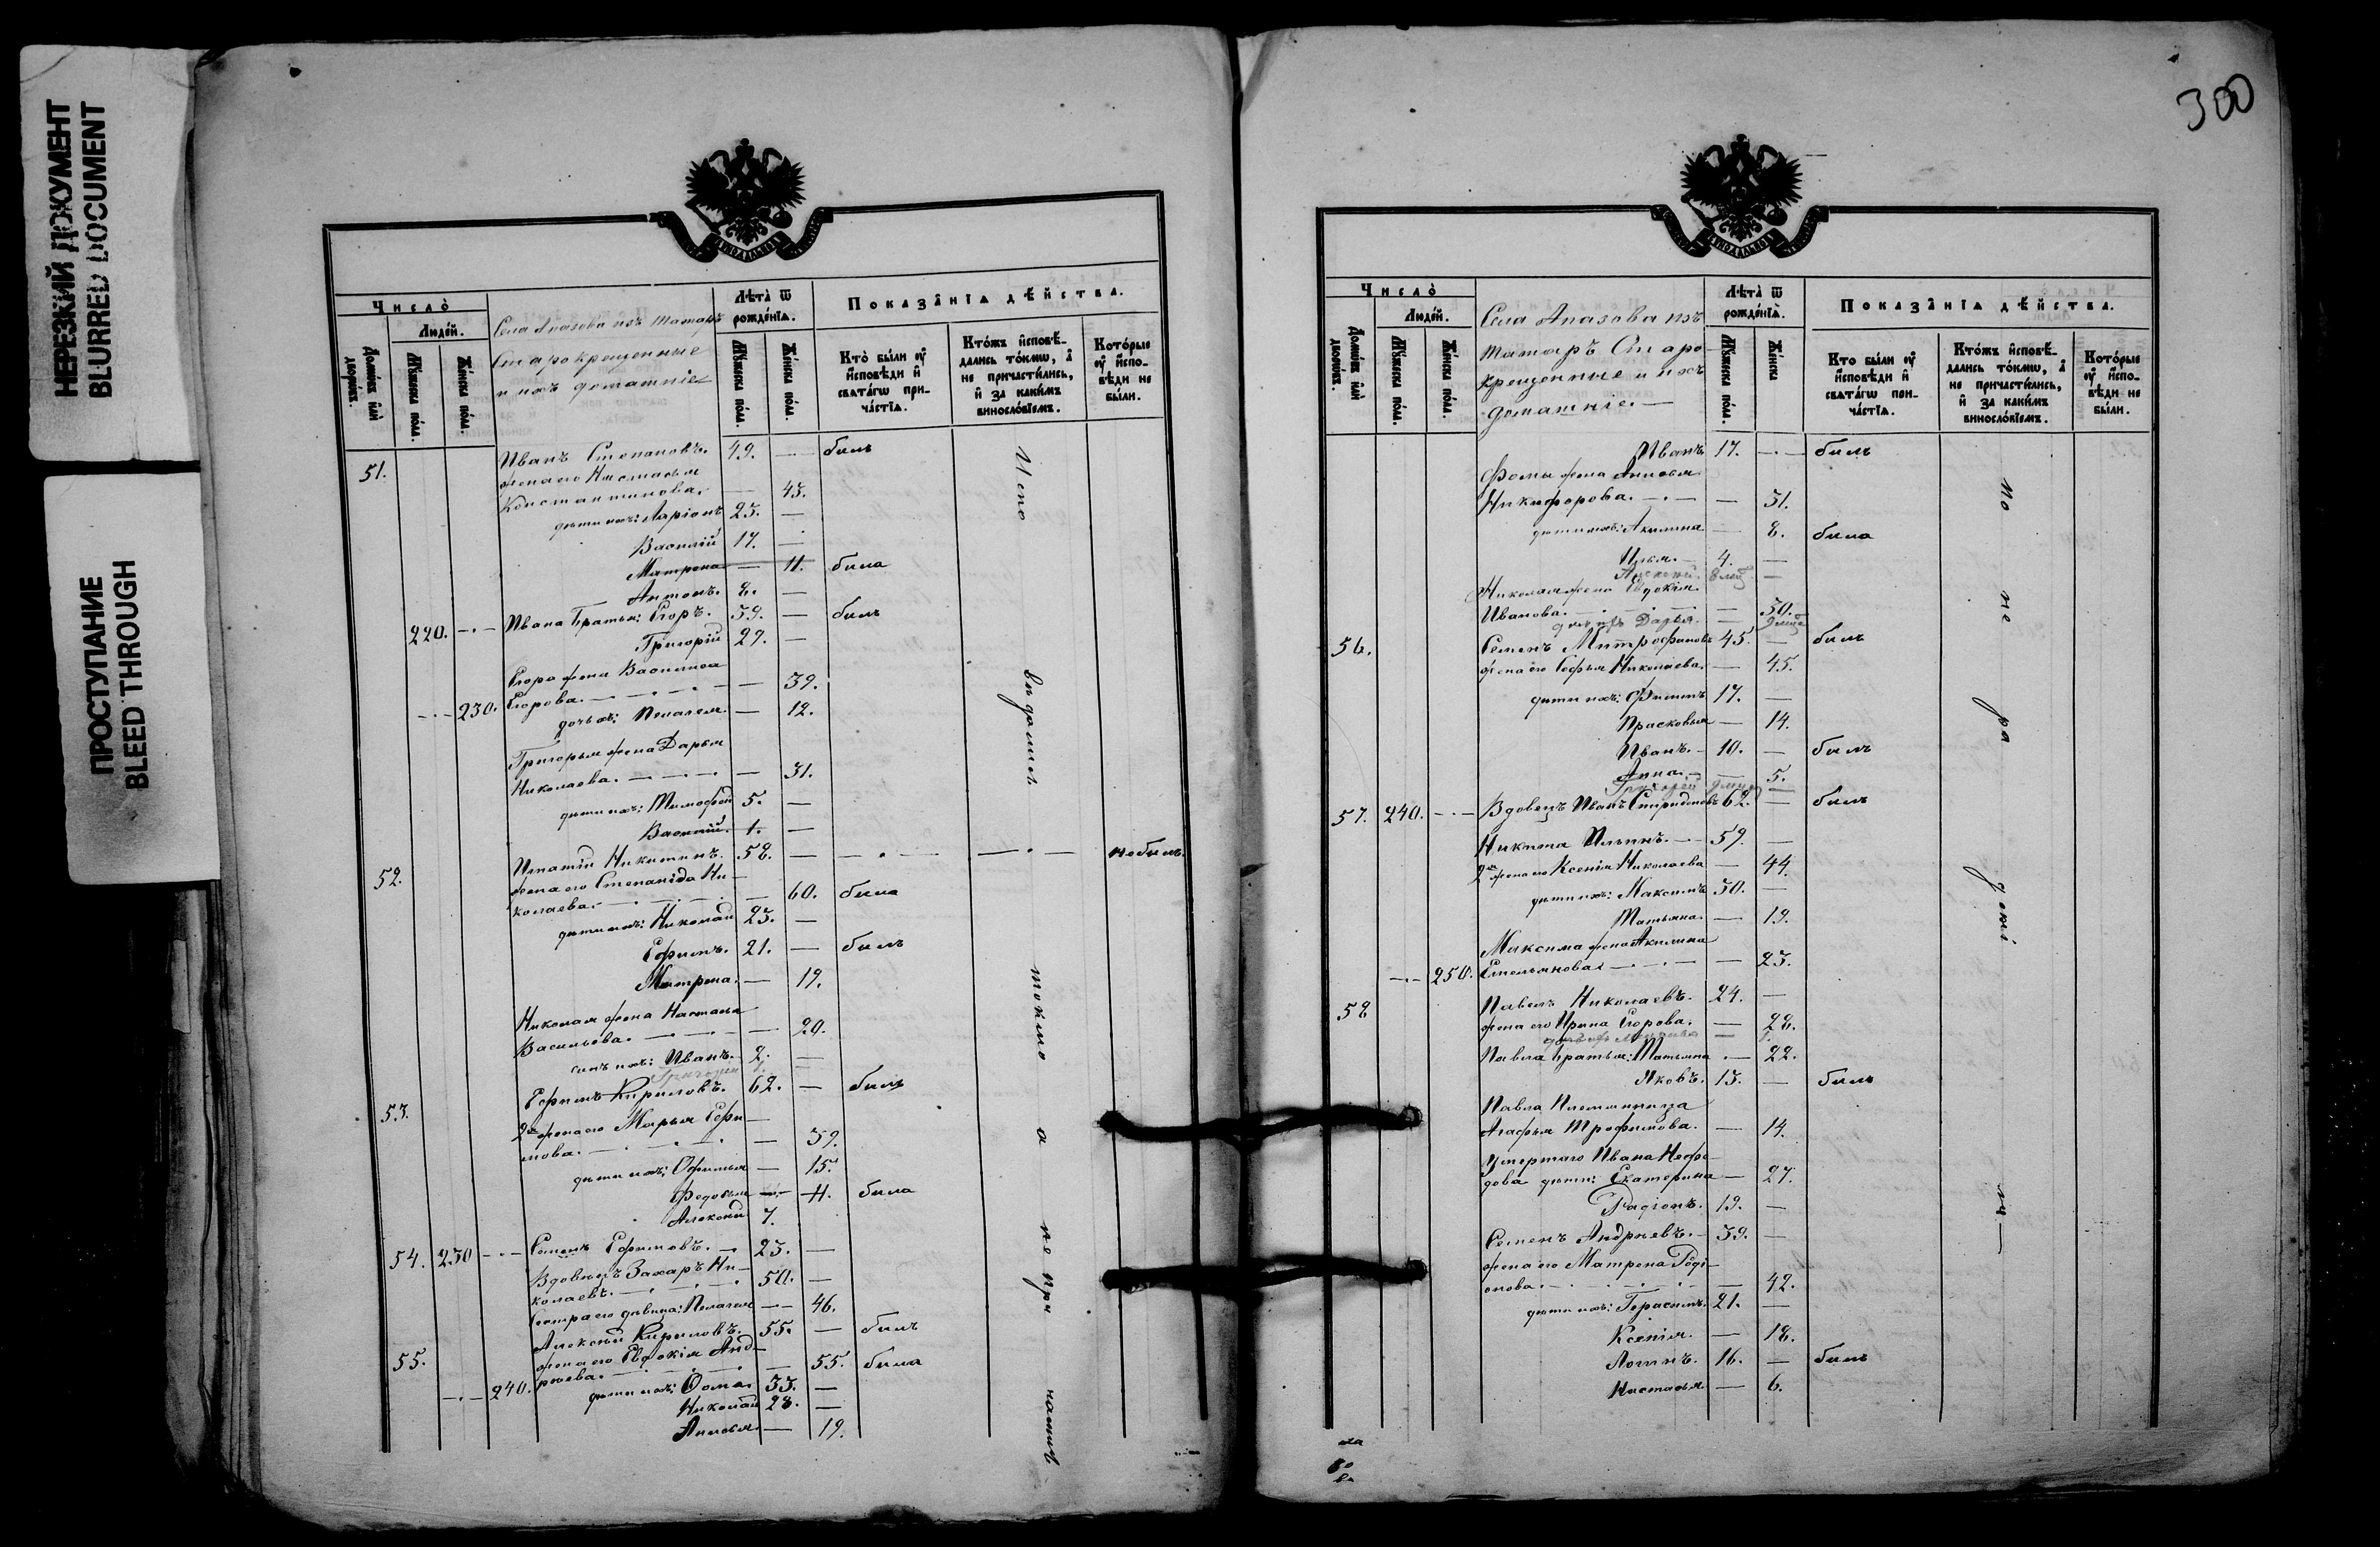 НЕРЕЗКИЙ ДОКУМЕНТ
BLURRED DOCUMENT
ПРОСТУПАНИЕ
BLEED THROUGH
Число̀
Людей.
Домѡвъ или дворѡвъ.
Мꙋжеска пола.
Женска пола.
Села Апазова изъ татаръ
Старокрещенные
и ихъ домашніе
Лѣта ѿ рожденїѧ.
Мꙋжеска пола.
Женска пола.
Показанїѧ дѣйства.
Кто были оу исповѣди и свѧтагѡ причастїѧ.
Ктожъ исповѣдались токмѡ, а не причастились, и за какимъ винословїемъ.
Которые оу исповѣди не были.
51. Иванъ Степановъ. 49. — былъ
жена его Настасья
Константинова. — 43.
дѣти ихъ: Ларіонъ 23. —
Василій 17. —
Матрена — 11. была
Антонъ. 8. —
220. Ивана братья: Егоръ. 39. — былъ
Григорій 29. —
Егора жена Василиса
230. Егорова. — 39.
дочь их: Пелагея — 12.
Григорья жена Дарья
Николаева. — 31.
дѣти ихъ: Тимофей 5. —
Василій. 1. —
52. Игнатій Никитинъ. 58. — — — не былъ.
жена его Степанида Ни-
колаева. — 60. была
дѣти ихъ: Николай 23. —
Ефимъ. 21. — былъ
Матрена. — 19.
Николая жена Настасья
Васильева. — 20.
сынъ ихъ: Иванъ. 2. —
Григорій
53. Ефимъ Кириловъ. 62. — былъ
2я жена его Марья Ефи-
мова. — 59.
дѣти ихъ: Офимья — 15.
Федосья — 11. была
Алексѣй 7.
54. 230 Семенъ Ефимовъ. — 23. —
Вдовецъ Захаръ Ни-
колаевъ. 50. —
Сестра его дѣвица: Пелагея — 46.
55. Алексѣй Кириловъ. 55. — былъ
жена его Евдокія Анд-
рѣева. — 55. была
240. дѣти ихъ: Ѳома. 33. —
Николай 28. —
Анисья. — 19.
Исповѣдались токмо а не причастились
300
Число̀
Людей.
Домѡвъ или дворѡвъ.
Мꙋжеска пола.
Женска пола.
Села Апазова изъ
татаръ Старо-
крещенные и ихъ
домашніе. —
Лѣта ѿ рожденїѧ.
Мꙋжеска пола.
Женска
Показанїѧ дѣйства.
Кто были оу исповѣди и свѧтагѡ причастїѧ.
Ктожъ исповѣдались токмѡ, а не причастились, и за какимъ винословїемъ.
Которые оу исповѣди не были.
Иванъ 17. — былъ
Фомы жена Анисья
Никифорова. — 31.
дѣти ихъ: Акилина — 8. была
Илья. 4. —
Алексѣй
Николая жена Евдокія
Иванова. — 30.
дочь ихъ Дарья. —
56. Семенъ Митрофановъ 45. — былъ
жена его Софья Николаева. — 45.
дѣти ихъ: Филипъ 17. —
Прасковья — 14.
Иванъ. 10. — былъ
Анна. — 5.
Григорій
57. 240. Вдовецъ Иванъ Спиридоновъ 62. — былъ
Никита Ильинъ. 59. —
2я жена его Ксенія Николаева — 44.
дѣти ихъ: Максимъ 30. —
Татьяна. — 19.
Максима жена Акилина
250. Емельянова. — 23.
58 Павелъ Николаевъ. 24. —
жена его Ирина Егорова. — 28.
Павла братья: Татьяна — 22.
Яковъ. 13. — былъ
Павла племянница
Агафья Трофимова. — 14.
Умершаго Ивана Нефе-
дова дѣти: Екатерина — 27.
Радіонъ. 19. —
Семенъ Андрѣевъ. — 39. —
жена его Матрена Роді-
онова. — 42.
дѣти ихъ: Герасимъ. 21. —
Ксенія. — 18.
Логинъ. 16. — былъ
Настасья. — 6.
по не ра дѣні ю —